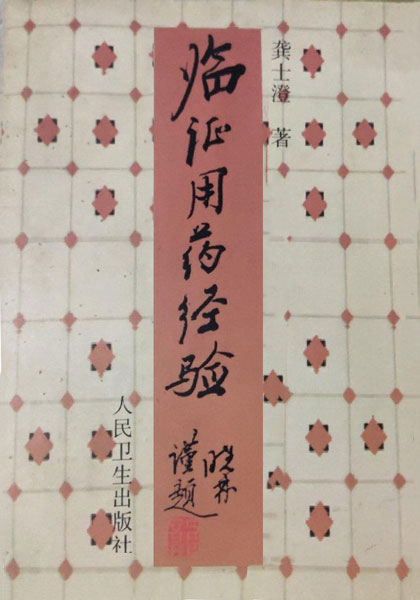 龚士澄 著
临证用药经验
谨题
人民卫生出版社